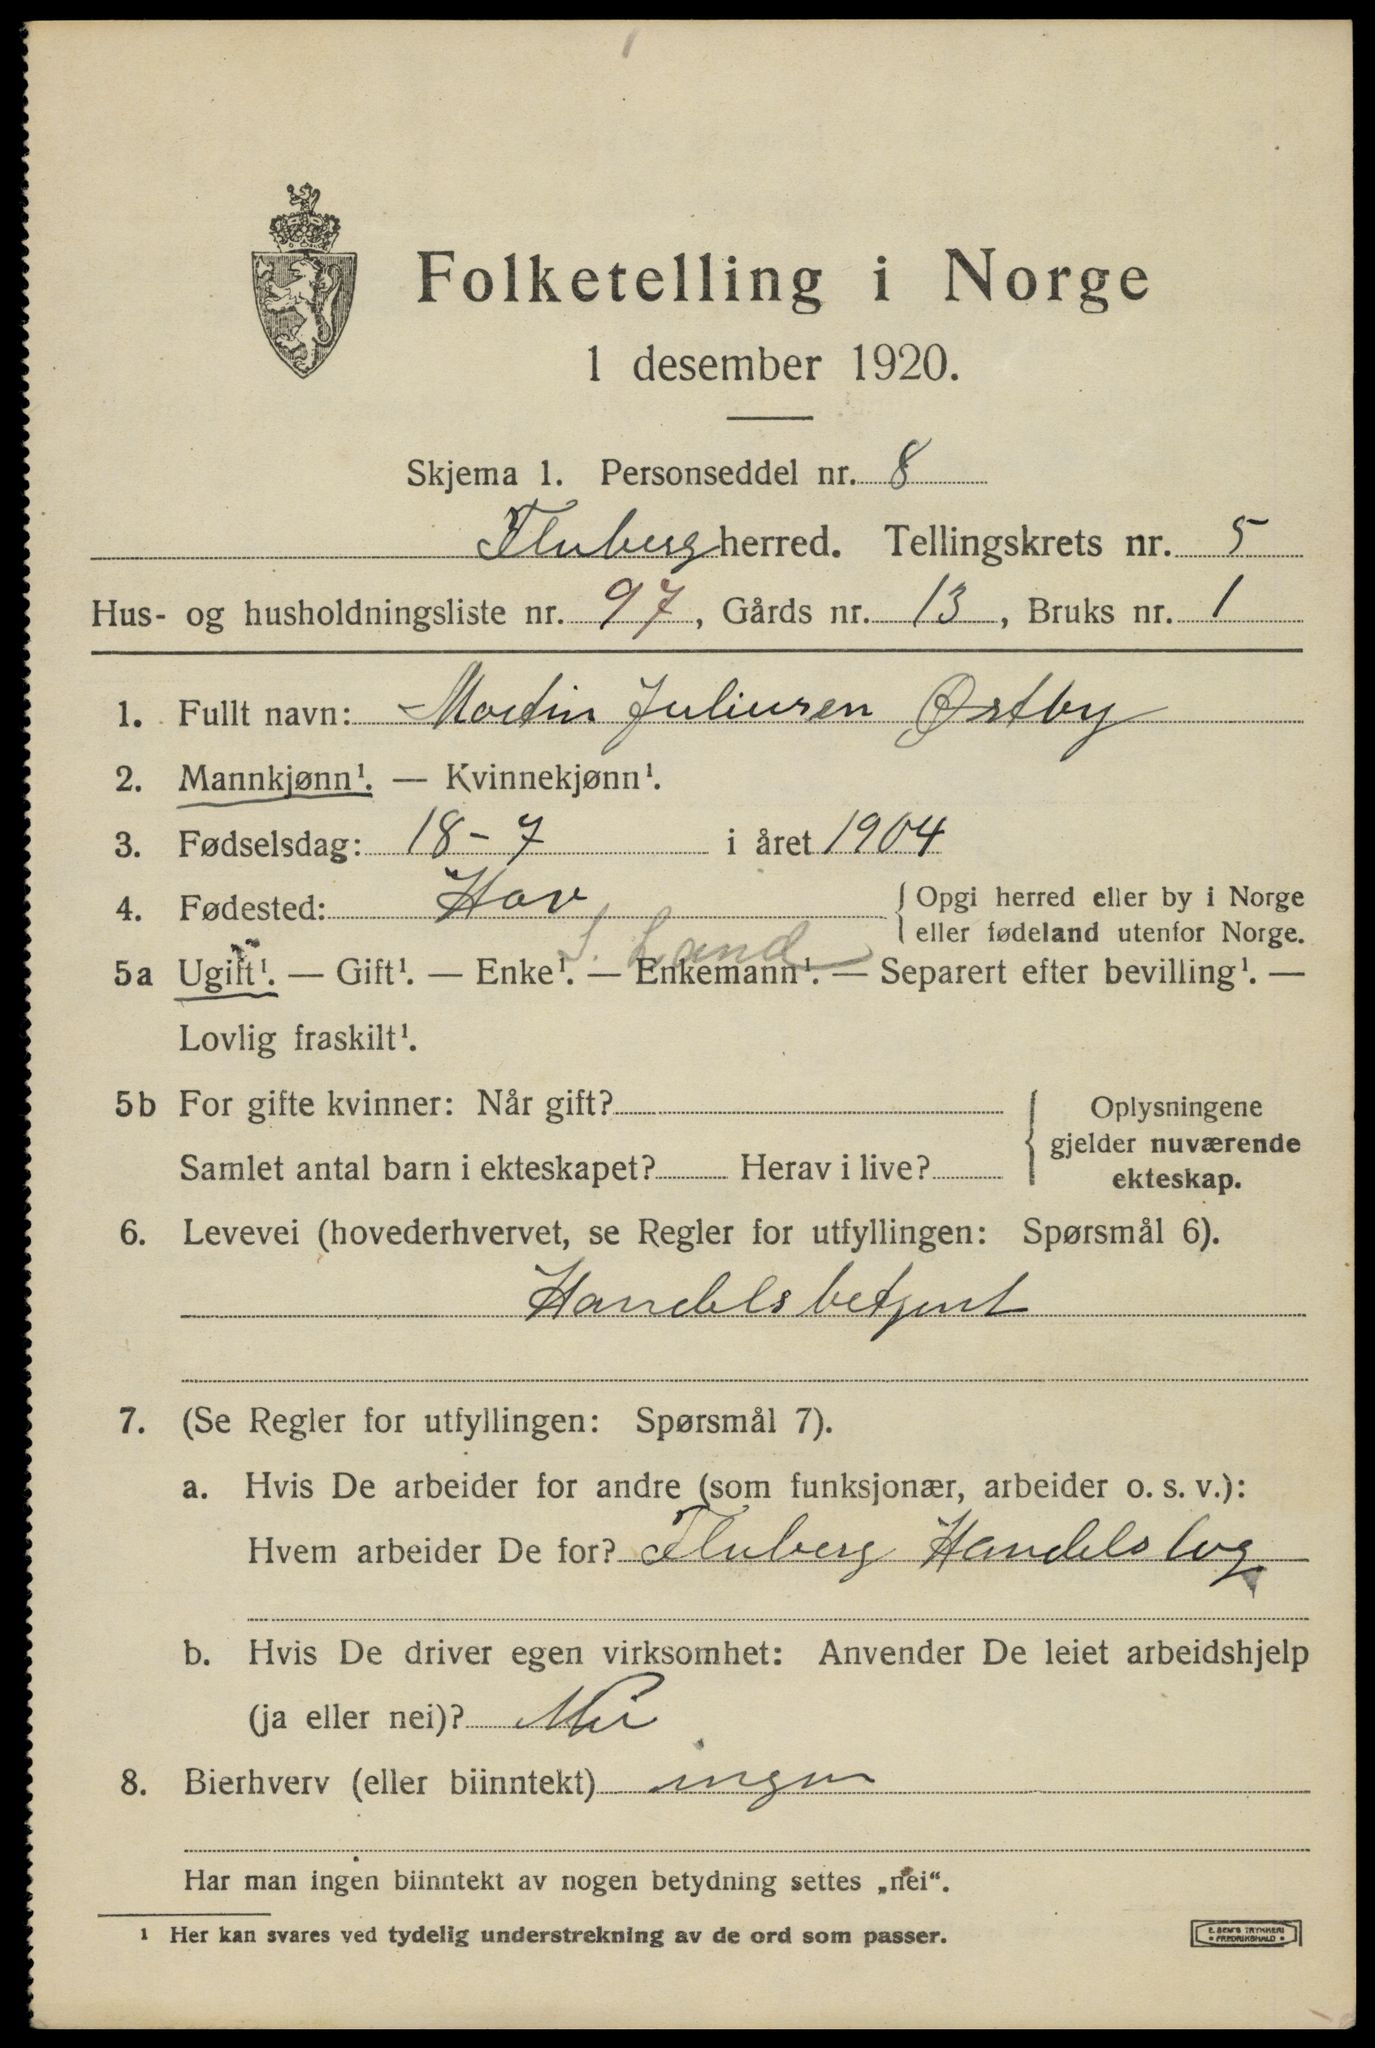 Folketelling i Norge
1 desember 1920.
Skjema 1. Personseddel nr. 8
Fluberg herred. Tellingskrets nr. 5
Hus- og husholdningsliste nr. 97, Gårds nr. 13, Bruks nr. 1
1. Fullt navn: Martin Juliusen Østby
2. Mannkjønn¹. — Kvinnekjønn¹.
3. Fødselsdag: 18-7 i året 1904
4. Fødested: Hov { Opgi herred eller by i Norge
eller fødeland utenfor Norge.
S. Land
5a Ugift¹. — Gift¹. — Enke¹. — Enkemann¹. — Separert efter bevilling¹. —
Lovlig fraskilt¹.
5b For gifte kvinner: Når gift? { Oplysningene
gjelder nuværende
Samlet antal barn i ekteskapet? Herav i live?
ekteskap.
6. Levevei (hovederhvervet, se Regler for utfyllingen: Spørsmål 6).
Handelsbetjent
7. (Se Regler for utfyllingen: Spørsmål 7).
a. Hvis De arbeider for andre (som funksjonær, arbeider o. s. v.):
Hvem arbeider De for? Fluberg Handelslag
b. Hvis De driver egen virksomhet: Anvender De leiet arbeidshjelp
(ja eller nei)? Nei
8. Bierhverv (eller biinntekt) ingen
Har man ingen biinntekt av nogen betydning settes „nei“.
¹ Her kan svares ved tydelig understrekning av de ord som passer.
E. SEM'S TRYKKERI
• FREDRIKSHALD •